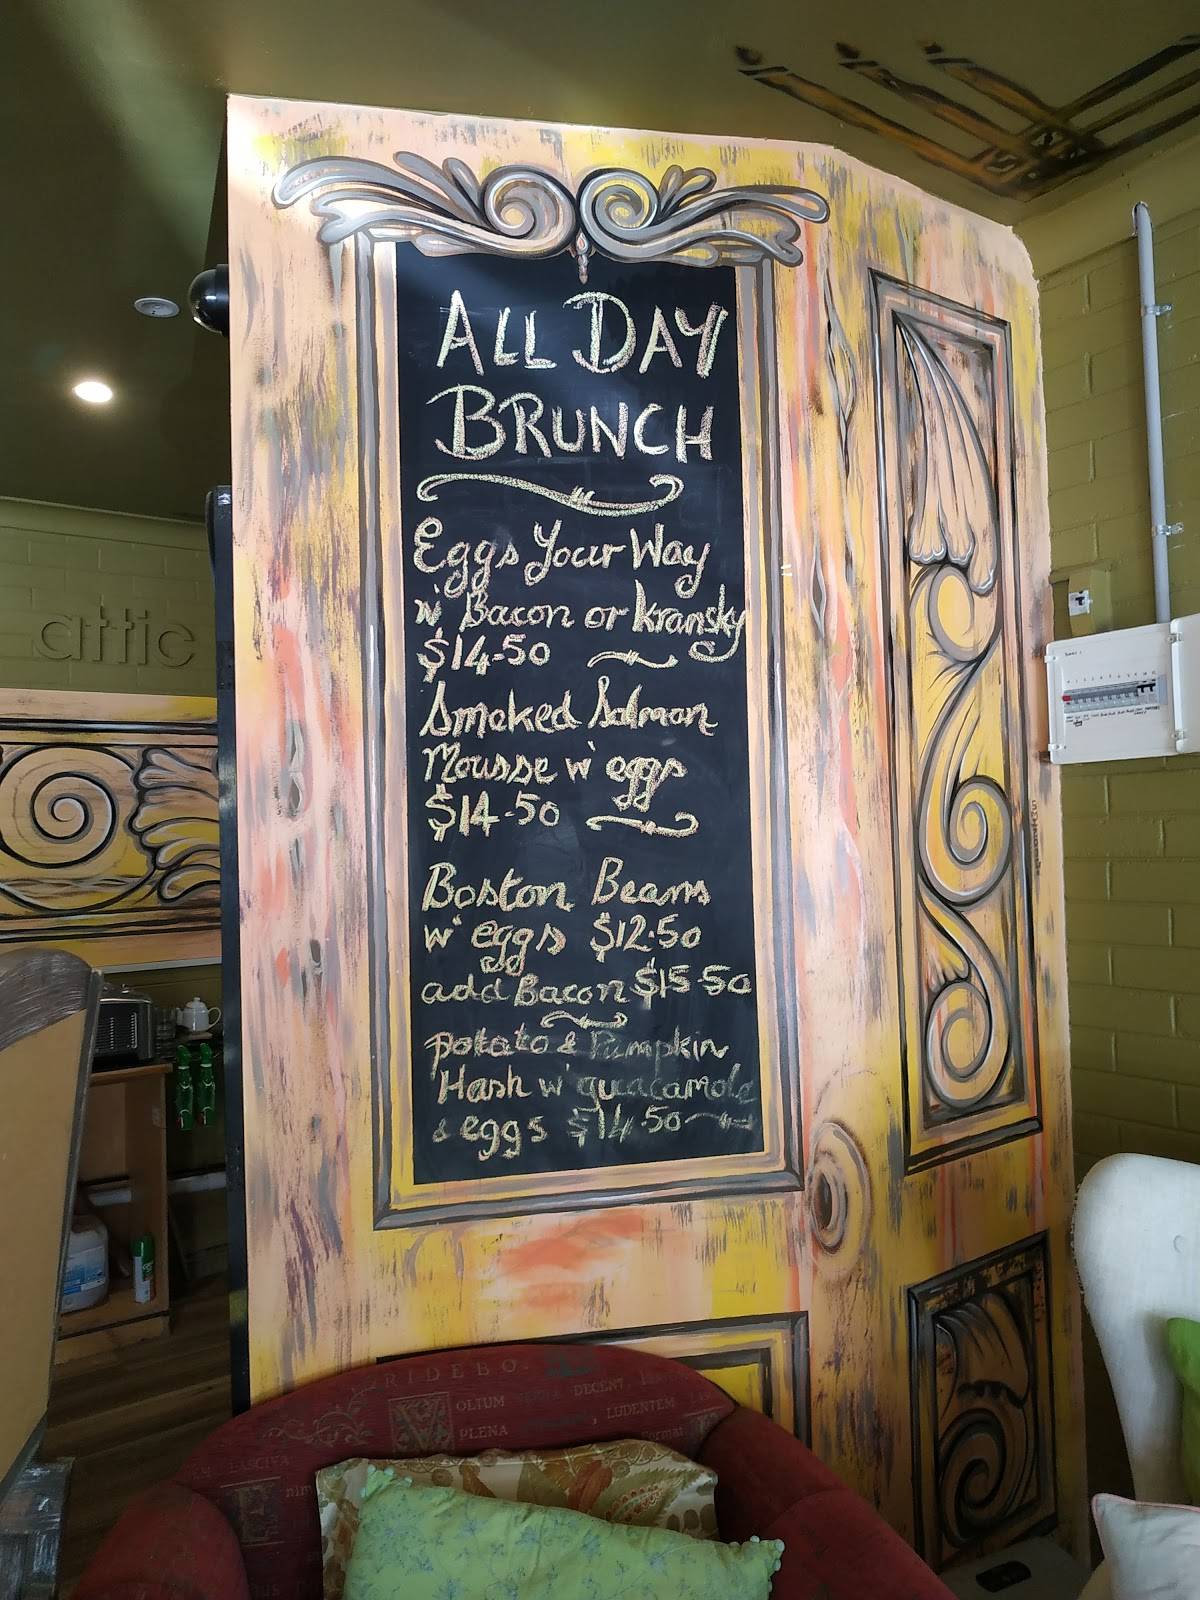 ALL DAY
BRUNCH
Eggs Your Way
w' Bacon or Kransky
$14-50
Smoked Salmon
Mousse w' eggs
$14-50
Boston Beans
w' eggs $12.50
add Bacon $15-50
potato & Pumpkin
Hash w' guacamole
& eggs $14.50
attic
RIDEBO
OLTUM DECENT,
PLENA LUDENTEM
Format